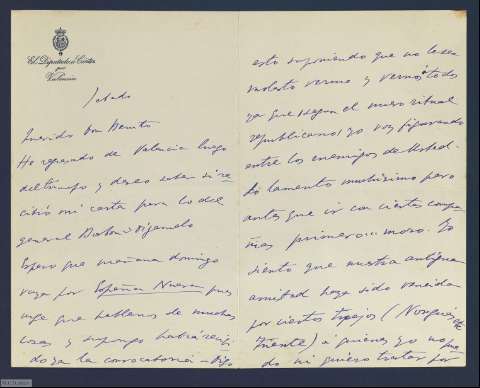 El Diputado á Cortes
por
Valencia
Sabado
Querido Don Benito
He regresado de Valencia luego
del triunfo y deseo saber si re-
cibió mi carta para lo del
general Dígamelo
Espero que mañana domingo
vaya por España Nueva pues
urge que hablemos de muchas
cosas y supongo habrá reci-
do ya la convocatoria
esto suponiendo que no le sea
molesto verme y vernos todos
ya que segun el nuevo ritual
republicano, yo voy figurando
entre los enemigos de Usted.
Lo lamento muchisimo pero
antes que ir con ciertas compa-
ñias primero... moro. Yo
siento que nuestra antigua
amistad haya sido vencida
por ciertos (Nougués
Fuente) á quienes yo no
ni quiero tratar